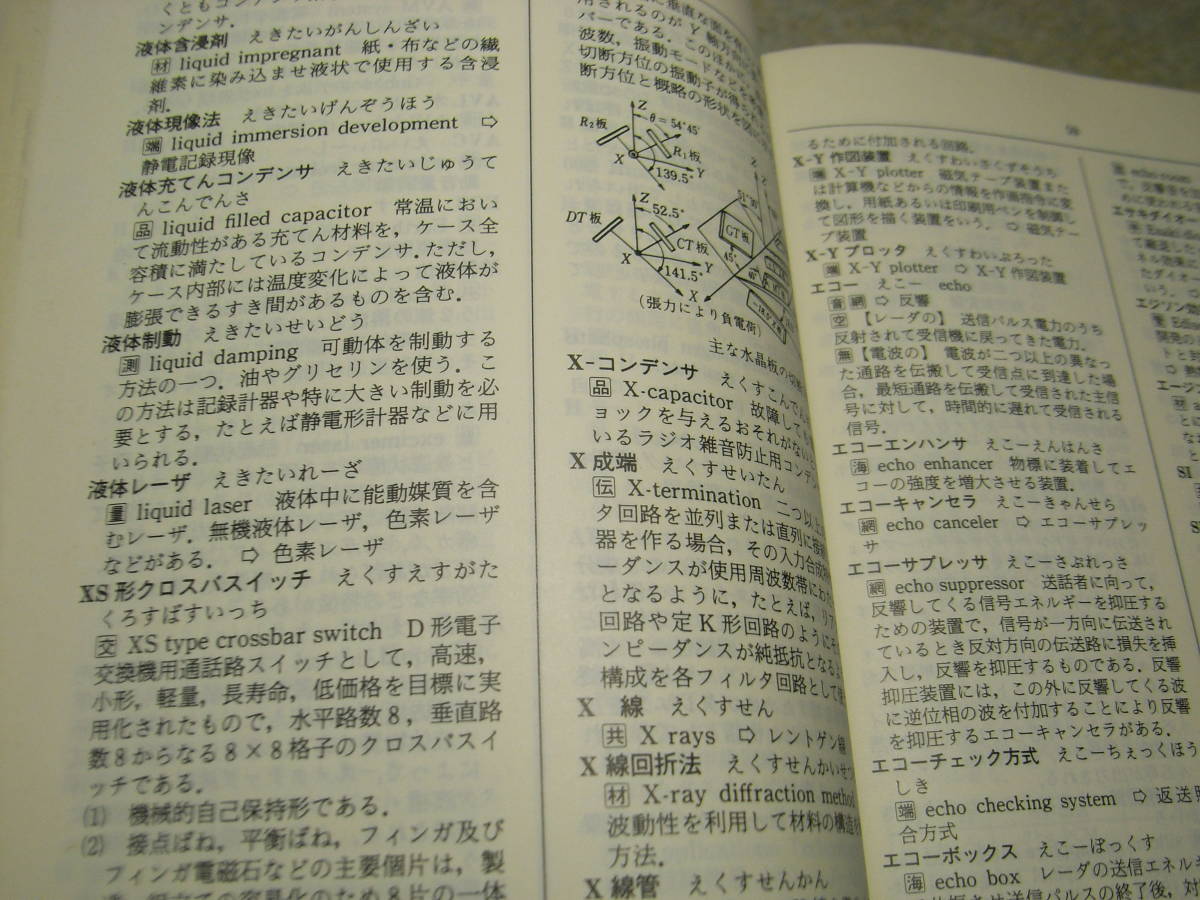 くともコンデンサ
ンデンサ.
液体含浸剤 えきたいがんしんざい
材 liquid impregnant 紙・布などの繊
維素に染み込ませ液状で使用する含浸
剤.
液体現像法 えきたいげんぞうほう
端 liquid immersion development ⇨
静電記録現像
液体充てんコンデンサ えきたいじゅうて
んこんでんさ
品 liquid filled capacitor 常温におい
て流動性がある充てん材料を，ケース全
容積に満たしているコンデンサ.ただし，
ケース内部には温度変化によって液体が
膨張できるすき間があるものを含む.
液体制動 えきたいせいどう
測 liquid damping 可動体を制動する
方法の一つ．油やグリセリンを使う．こ
の方法は記録計器や特に大きい制動を必
要とする，たとえば静電形計器などに用
いられる.
液体レーザ えきたいれーざ
量 liquid laser 液体中に能動媒質を含
むレーザ．無機液体レーザ，色素レーザ
などがある. ⇨ 色素レーザ
XS形クロスバスイッチ えくすえすがた
くろすばすいっち
交 XS type crossbar switch D形電子
交換機用通話路スイッチとして，高速，
小形，軽量，長寿命，低価格を目標に実
用化されたもので，水平路数8，垂直路
数8からなる8×8格子のクロスバスイ
ッチである.
(1) 機械的自己保持形である.
(2) 接点ばね，平衡ばね，フィンガ及び
フィンガ電磁石などの主要個片は，製
用されるのが Y 軸方向
バーである．このほか
波数，振動モードなどを
切断方位の振動子が得られ
断方位と概略の形状を
Z
θ=54°45′
R₂板
R₁板
Y
X
139.5°
Z
DT板
52.5°
CT板
Y
X
141.5°
X
GT板
45°
(張力により負電荷)
主な水晶板の切断
X-コンデンサ えくすこんでん
品 X-capacitor 故障しても
ョックを与えるおそれがない
いるラジオ雑音防止用コンデン
X成端 えくすせいたん
伝 X-termination 二つ以上
タ回路を並列または直列に接
器を作る場合，その入力合成
ーダンスが使用周波数帯にわた
となるように，たとえば，リア
回路や定K形回路のようにそ
ンピーダンスが純抵抗となるよ
構成を各フィルタ回路として
X 線 えくすせん
共 X rays ⇨ レントゲン線
X線回折法 えくすせんかいせつ
材 X-ray diffraction method
波動性を利用して材料の構造を
方法.
X線管 えくすせんかん
59
るために付加される回路.
X-Y作図装置 えくすわいさくずそうち
端 X-Y plotter 磁気テープ装置また
は計算機などからの情報を作画指令に変
換し，用紙あるいは印刷用ペンを制御し
て図形を描く装置をいう. ⇨ 磁気テー
プ装置
X-Yプロッタ えくすわいぷろった
端 X-Y plotter ⇨ X-Y作図装置
エコー えこー echo
音 網 ⇨ 反響
空 【レーダの】 送信パルス電力のうち
反射されて受信機に戻ってきた電力.
無 【電波の】 電波が二つ以上の異なっ
た通路を伝搬して受信点に到達した場
合，最短通路を伝搬して受信された主信
号に対して，時間的に遅れて受信される
信号.
エコーエンハンサ えこーえんはんさ
海 echo enhancer 物標に装着してエ
コーの強度を増大させる装置.
エコーキャンセラ えこーきゃんせら
網 echo canceler ⇨ エコーサプレッ
サ
エコーサプレッサ えこーさぷれっさ
網 echo suppressor 送話者に向って，
反響してくる信号エネルギーを抑圧する
ための装置で，信号が一方向に伝送され
ているとき反対方向の伝送路に損失を挿
入し，反響を抑圧するものである．反響
抑圧装置には，この外に反響してくる波
に逆位相の波を付加することにより反響
を抑圧するエコーキャンセラがある.
エコーチェック方式 えこーちぇっくほう
しき
端 echo checking system ⇨ 返送照
合方式
エコーボックス えこーぼっくす
海 echo box レーダの送信エネル
させ送信パルスの終了後，対
echo room
エサキダイオー